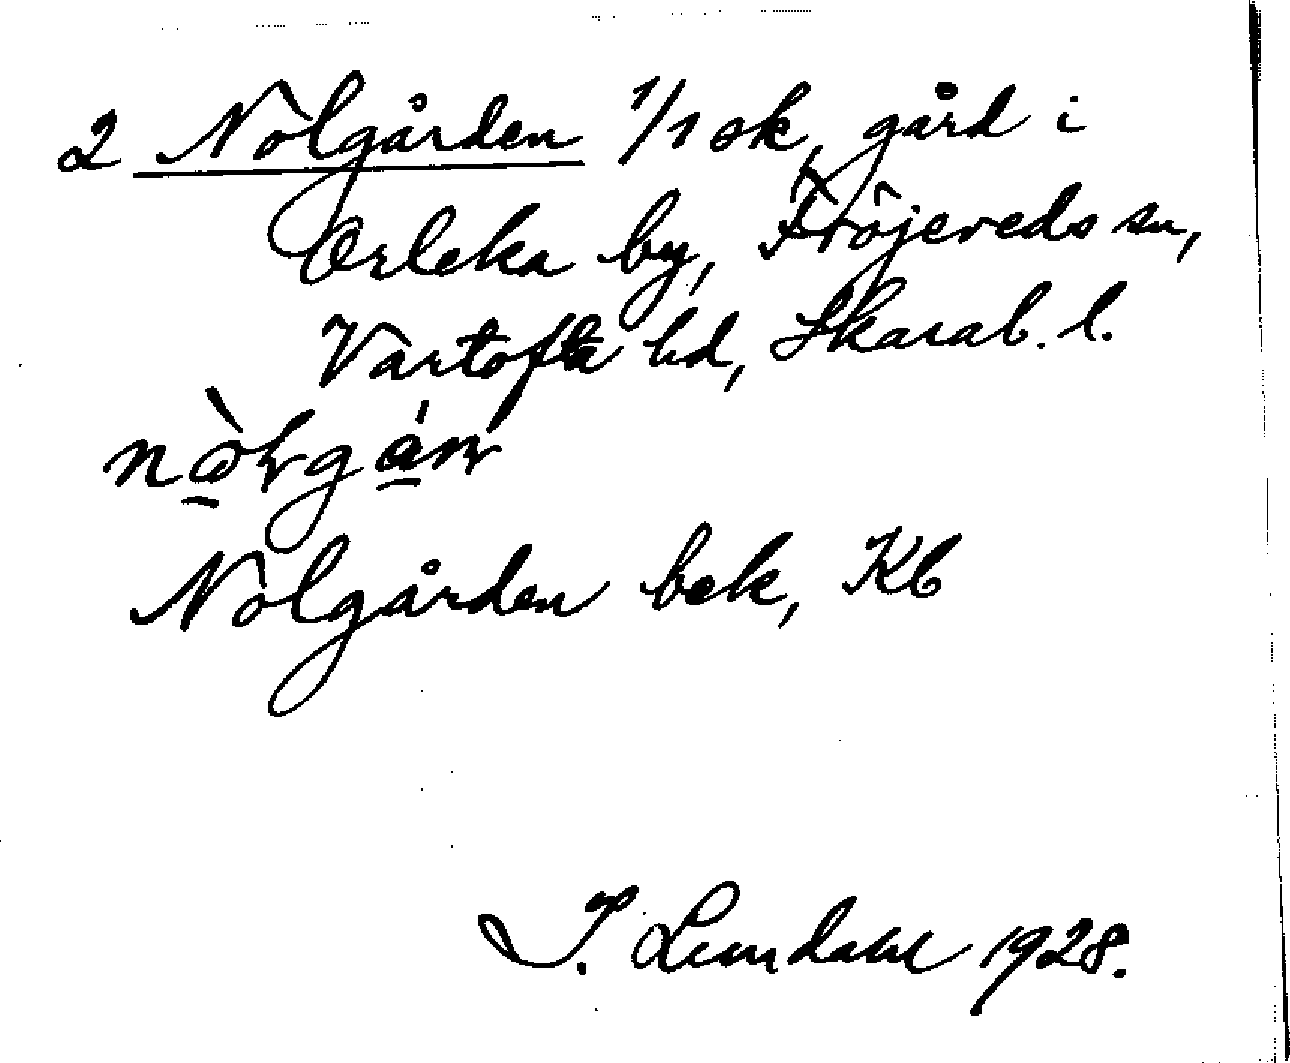 2 Nolgården 1/1 sk, gård i
Orleka by, Fröjereds sn,
Vartofta hd, Skarab. l.
Nolgården bek, Kb
I. Lundahl 1928.